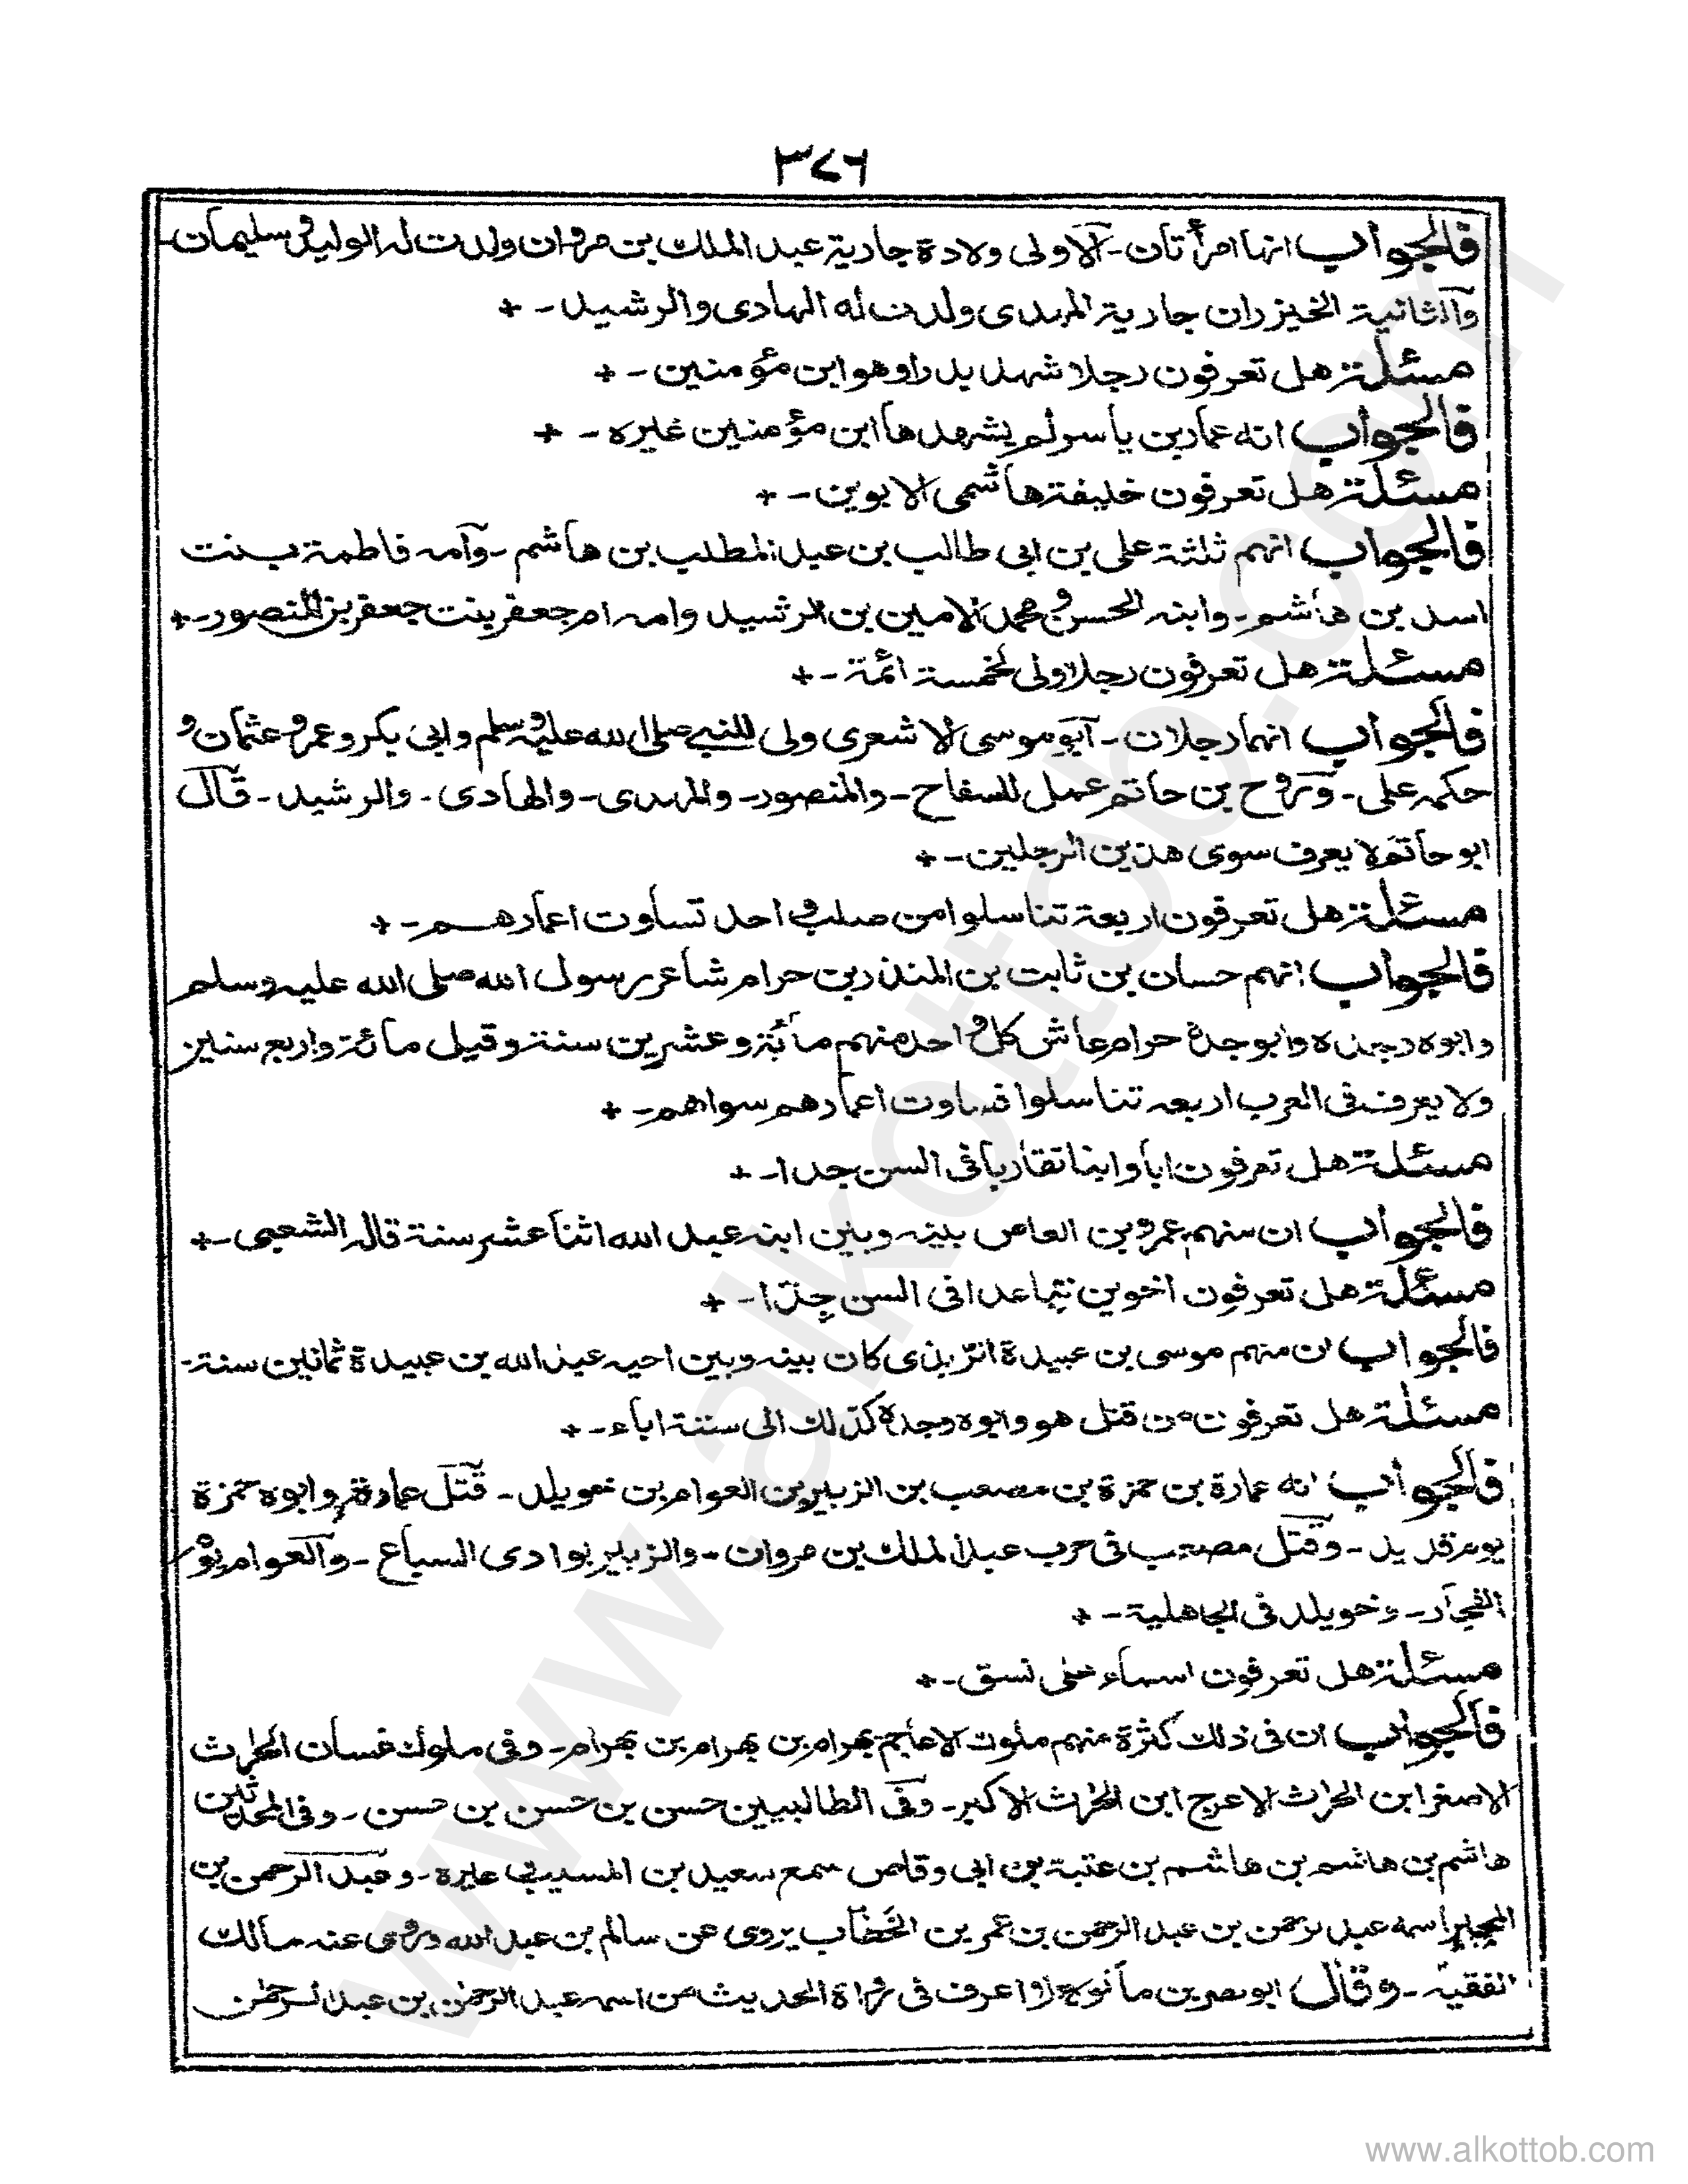 ٣٧٦
فالجواب انها امرأتان ـ الاولى ولادة جارية عبد الملك بن مروان ولدت له الوليد وسليمان ـ
والثانية الخيزران جارية المهدى ولدت له الهادى والرشيد ـ +
مسئلة هل تعرفون رجلا شهد بدرا وهو ابن مؤمنين ـ +
فالجواب انه عمار بن ياسر لم يشهدها ابن مؤمنين غيره ـ +
مسئلة هل تعرفون خليفة هاشمى الابوين ـ +
فالجواب انهم ثلثة على بن ابى طالب بن عبد المطلب بن هاشم ـ وامه فاطمة بنت
اسد بن هاشم ـ وابنه الحسن ومحمد الامين بن الرشيد وامه ام جعفر بنت جعفر بن المنصور ـ +
مسئلة هل تعرفون رجلا ولى لخمسة ائمة ـ +
فالجواب انهما رجلان ـ ابو موسى الاشعرى ولى للنبى صلى الله عليه وسلم وابى بكر وعمر وعثمان و
حكمه على ـ وروح بن حاتم عمل للسفاح ـ والمنصور ـ والمهدى ـ والهادى ـ والرشيد ـ قال
ابو حاتم لا يعرف سوى هذين الرجلين ـ +
مسئلة هل تعرفون اربعة تناسلوا من صلب واحد تساوت اعمارهم ـ +
فالجواب انهم حسان بن ثابت بن المنذر بن حرام شاعر رسول الله صلى الله عليه وسلم
وابوه وجده وابو جده حرام عاش كل واحد منهم مائة وعشرين سنة وقيل مائة واربع سنين
ولا يعرف فى العرب اربعه تناسلوا تساوت اعمارهم سواهم ـ +
مسئلة هل تعرفون ابا وابنا تقاربا فى السن جدا ـ +
فالجواب ان منهم عمرو بن العاص بينه وبين ابنه عبد الله اثنا عشر سنة قاله الشعبى ـ +
مسئلة هل تعرفون اخوين تباعدا فى السن جدا ـ +
فالجواب ان منهم موسى بن عبيدة الربذى كان بينه وبين اخيه عبد الله بن عبيدة ثمانين سنة ـ
مسئلة هل تعرفون من قتل هو وابوه وجده كذلك الى ستة اباء ـ +
فالجواب انه عمارة بن حمزة بن مصعب بن الزبير بن العوام بن خويلد ـ قتل عمارة وابوه حمزة
يوم قديد ـ وقتل مصعب فى حرب عبد الملك بن مروان ـ والزبير بوادى السباع ـ والعوام يوم
الفجار ـ وخويلد فى الجاهلية ـ +
مسئلة هل تعرفون اسماء على نسق ـ +
فالجواب ان فى ذلك كثرة منهم ملوك الاعاجم بهرام بن بهرام بن بهرام ـ وفى ملوك غسان الحارث
الاصغر ابن الحارث الاعرج ابن الحارث الاكبر ـ وفى الطالبيين حسن بن حسن بن حسن ـ وفى المحدثين
هاشم بن هاشم بن هاشم بن عتبة بن ابى وقاص سمع سعيد بن المسيب وغيره ـ وعبد الرحمن بن
المجبر اسمه عبد الرحمن بن عبد الرحمن بن عمر بن الخطاب يروى عن سالم بن عبد الله وروى عنه مالك
الفقيه ـ وقال ابو نصر بن ماكولا لا اعرف فى رواة الحديث من اسمه عبد الرحمن بن عبد الرحمن
www.alkottob.com
www.alkottob.com